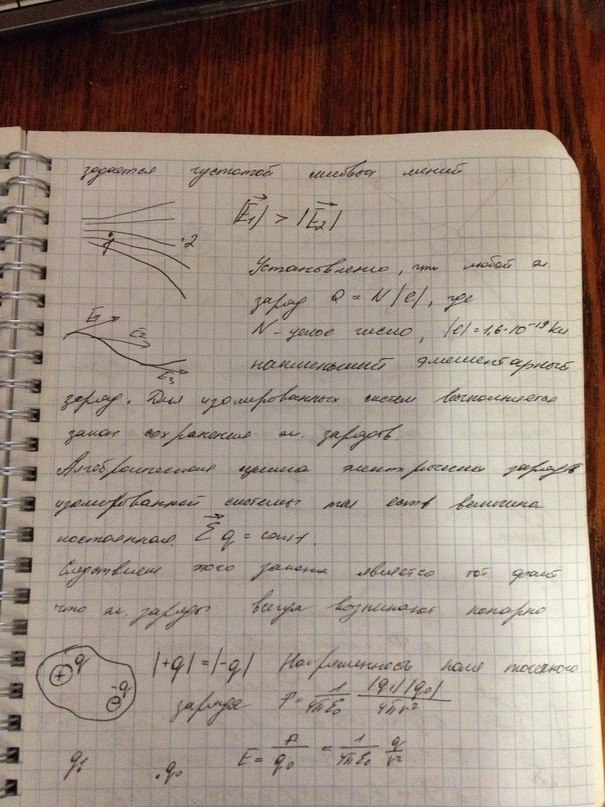 задается густотой силовых линий
|E₁| > |E₂|
1
.2
Установленно, что любой эл.
заряд Q = N|e|, где
N - целое число, |e| = 1,6·10⁻¹⁹ Кл
E₁
E₂
E₃
наименьший элементарный
заряд. Для изолированных систем выполняется
закон сохранения эл. зарядов.
Алгебраическая сумма электрических зарядов
изолированной системы тел есть величина
постоянная. Σ q = const
Следствием этого закона является тот факт
что эл. заряды всегда возникают попарно
+ q
-q
|+q| = |-q| Напряженность поля точечного
заряда F = 1/4πε₀ |q₁||q₀|/4πr²
q₁ .q₀ E = F/q₀ = 1/4πε₀ q/r²